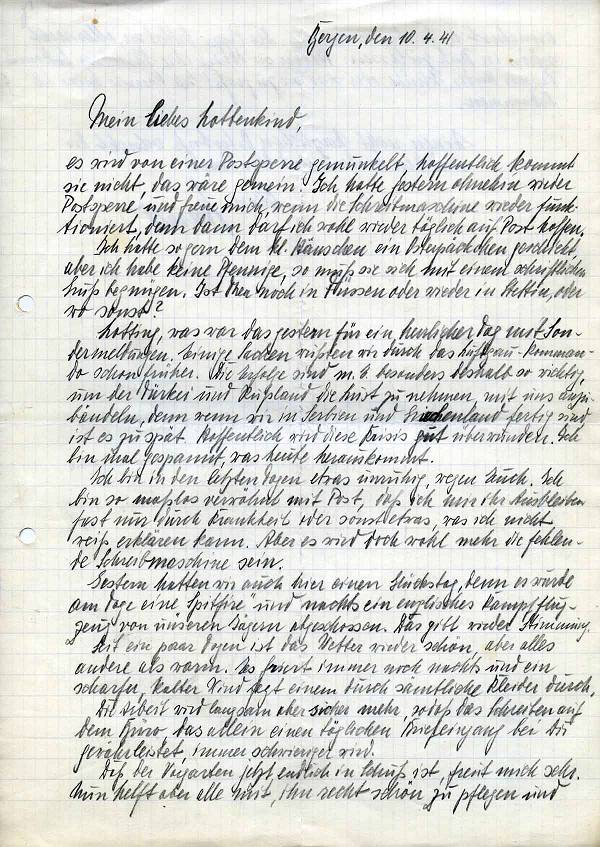 Bergen, den 10.4.41
Mein liebes Lottenkind,
es wird von einer Postsperre gemunkelt, hoffentlich kommt
sie nicht, das wäre gemein. Ich hatte gestern ohnehin wieder
Postsperre und freue mich, wenn die Schreibmaschine wieder funk-
tioniert, denn dann darf ich wohl wieder täglich auf Post hoffen.
Ich hätte so gern dem kl. Hänschen ein Osterpäckchen geschickt
aber ich habe keine Pfennige, so muß sie sich mit einem schriftlichen
Kuß begnügen. Ist noch in Güssen oder wieder in Stettin, oder
wo sonst?
Lotting, was war das gestern für ein herrlicher Tag mit Son-
dermeldungen. Einige Sachen wußten wir durch das Luftgau-Komman-
do schon früher. Die Erfolge sind m. E. besonders deshalb so wichtig,
um der Türkei und Rußland die Lust zu nehmen, mit uns anzu-
bändeln, denn wenn wir in Serbien und Griechenland fertig sind
ist es zu spät. Hoffentlich wird diese Krisis gut überwunden. Ich
bin mal gespannt, was heute herauskommt.
Ich bin in den letzten Tagen etwas unruhig, wegen Euch. Ich
bin so maßlos verwöhnt mit Post, daß ich mir ihr Ausbleiben
fast nur durch Krankheit oder sonst etwas, was ich nicht
weiß erklären kann. Aber es wird doch wohl mehr die fehlen-
de Schreibmaschine sein.
Gestern hatten wir auch hier einen Glückstag, denn es wurde
am Tage eine "Spitfire" und nachts ein englisches Kampfflug-
zeug von unseren Jägern abgeschossen. Das gibt wieder Stimmung.
Seit ein paar Tagen ist das Wetter wieder schön, aber alles
andere als warm. Es friert immer noch nachts und ein
scharfer, kalter Wind fegt einem durch sämtliche Kleider durch.
Die Arbeit wird langsam aber sicher mehr, sodaß das Schreiben auf
dem Büro, das allein einen täglichen Briefeingang bei Dir
gewährleistet, immer schwieriger wird.
Daß der Vorgarten jetzt endlich in Schuß ist, freut mich sehr.
Nun helft aber alle mit, ihn recht schön zu pflegen und